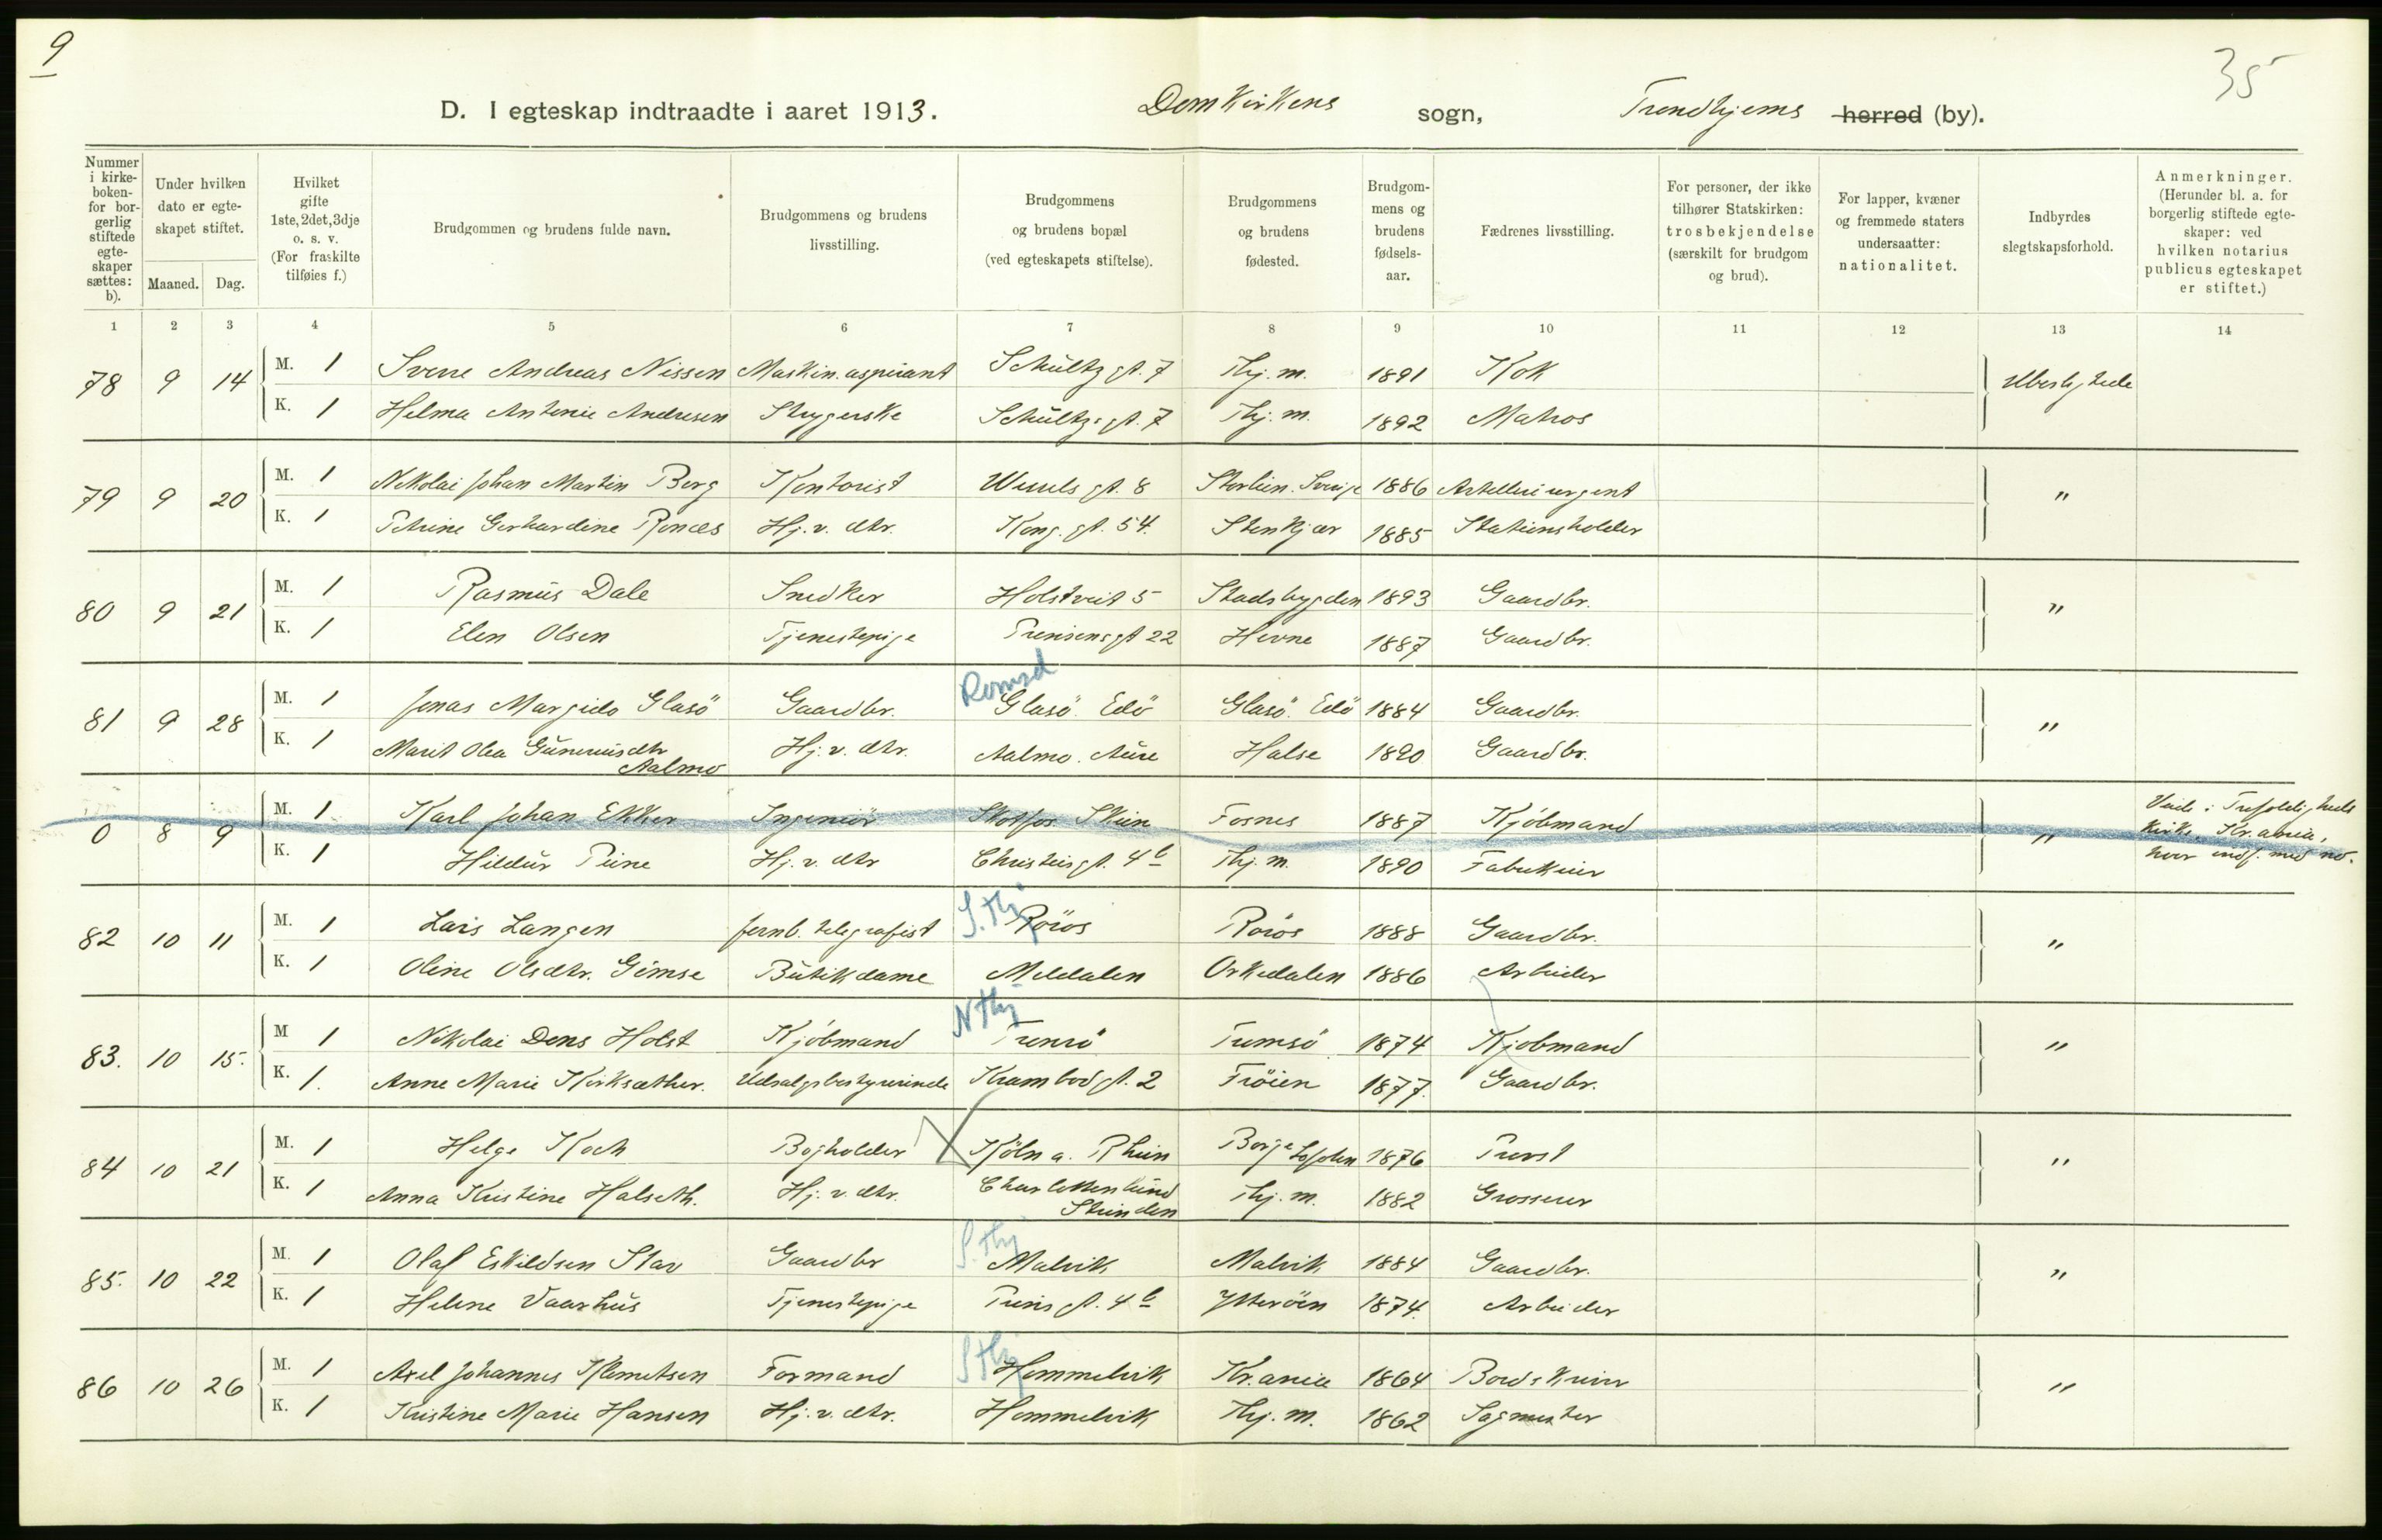 9
35
D. I egteskap indtraadte i aaret 1913. Domkirkens sogn, Trondhjems herred (by).
Nummer i kirkeboken- for borgerlig stiftede egteskaper sættes: b).
Under hvilken dato er egteskapet stiftet.
Maaned. Dag.
Hvilket gifte 1ste, 2det, 3dje o. s. v. (For fraskilte tilføies f.)
Brudgommen og brudens fulde navn.
Brudgommens og brudens livsstilling.
Brudgommens og brudens bopæl (ved egteskapets stiftelse).
Brudgommens og brudens fødested.
Brudgommens og brudens fødselsaar.
Fædrenes livsstilling.
For personer, der ikke tilhører Statskirken: trosbekjendelse (særskilt for brudgom og brud).
For lapper, kvæner og fremmede staters undersaatter: nationalitet.
Indbyrdes slegtskapsforhold.
Anmerkninger. (Herunder bl. a. for borgerlig stiftede egteskaper: ved hvilken notarius publicus egteskapet er stiftet.)
1 2 3 4 5 6 7 8 9 10 11 12 13 14
78 9 14 M. 1 Sverre Andreas Nissen Maskin.aspirant Schültz gt. 7 Thj.m. 1891 Kok Ubeslegtede
K. 1 Helma Antonie Andresen Strygerske Schültz gt. 7 Thj.m. 1892 Matros
79 9 20 M. 1 Nikolai Johan Martin Berg Kontorist Wessels gt. 8 Storlien. Sverige 1886 Artellerisergent "
K. 1 Petrine Gerhardine Rønæs Hj.v. dtr. Kong. gt. 54. Stenkjær 1885 Stationsholder
80 9 21 M. 1 Rasmus Dale Snedker Holstveit 5 Stadsbygden 1893 Gaardbr. "
K. 1 Elen Olsen Tjenestepige Prinsensgt 22 Hevne 1887 Gaardbr.
Romsd
81 9 28 M. 1 Jonas Margido Glasö Gaardbr. Glasö. Edö Glasö. Edö 1884 Gaardbr. "
K. 1 Marit Olea Gunneriusdtr Aalmo Hj.v. dtr. Aalmo. Aure Halse 1890 Gaardbr.
0 8 9 M. 1 Karl Johan Ekker Ingeniör Skotfos Skien Fosnes 1887 Kjöbmand " Viede i Trefoldigheds kirke, Kr.ania, hvor indf. med no.
K. 1 Hildur Piene Hj.v. dtr Christiesgt. 4 b Thj.m. 1890 Fabrikeier
S.Thj
82 10 11 M. 1 Lars Langen Jernb. telegrafist Röros Röros 1888 Gaardbr. "
K. 1 Oline Olsdtr. Gimse Butikdame Meldalen Orkedalen 1886 Arbeider
N Thj
83. 10 15. M 1 Nikolai Dons Holst Kjöbmand Tromsö Tromsö 1874 Kjobmand "
K. 1. Anne Marie Kirksæther. Udsalgsbestyrerinde Krambodgt. 2 Fröien 1877. Gaardbr.
84 10 21 M. 1 Helge Koch Bogholder X Köln a. Rhein Borge Lofoten 1876 Provst "
K. 1 Anna Kristine Halseth. Hj.v. dtr. Charlottenlund Strinden Thj.m. 1882 Grosserer
S.Thj
85. 10 22 M. 1 Olaf Eskildsen Stav Gaardbr Malvik Malvik 1884 Gaardbr. "
K. 1 Helene Vaarhus Tjenestepige Prins gt. 4 b Ytterøen 1874. Arbeider
S Thj
86 10 26 M. 1 Axel Johannes Klemetsen Formand Hommelvik Kr.ania 1864 Bordskriver "
K. 1 Kristine Marie Hansen Hj.v. dtr. Hommelvik Thj.m. 1862 Sagmester